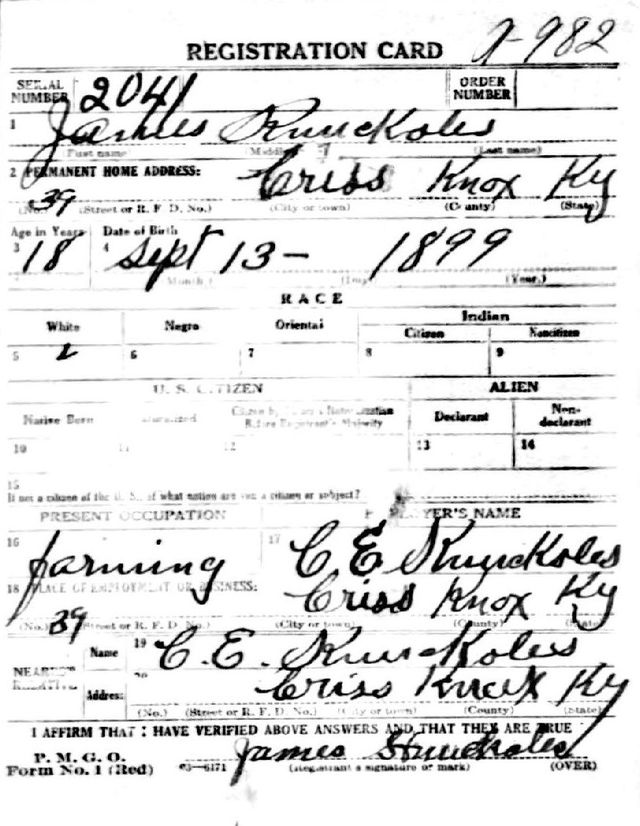 REGISTRATION CARD A-982
SERIAL NUMBER 2041 ORDER NUMBER
1 James
First name (Last name)
2 PERMANENT HOME ADDRESS: Criss Knox Ky
(No.) 39 (Street or R. F. D. No.) (City or town) (County) (State)
Age in Years Date of Birth
3 18 4 Sept 13 - 1899
(Month.) (Day.) (Year.)
RACE
White Negro Oriental Indian
Citizen Noncitizen
5 6 7 8 9
U. S. CITIZEN ALIEN
Native Born Declarant Non-declarant
10 11 12 13 14
15
If not a citizen of the U. S., of what nation are you a citizen or subject?
PRESENT OCCUPATION EMPLOYER'S NAME
16 farming 17 C. E.
18 PLACE OF EMPLOYMENT OR BUSINESS: Criss Knox Ky
(No.) 39 (Street or R. F. D. No.) (City or town) (County) (State)
NEAREST RELATIVE
Name 19 C. E.
Address: 20 Criss Ky
(No.) (Street or R. F. D. No.) (City or town) (County) (State)
I AFFIRM THAT I HAVE VERIFIED ABOVE ANSWERS AND THAT THEY ARE TRUE
P. M. G. O.
Form No. 1 (Red) 03-6171 James
(Registrant's signature or mark) (OVER)